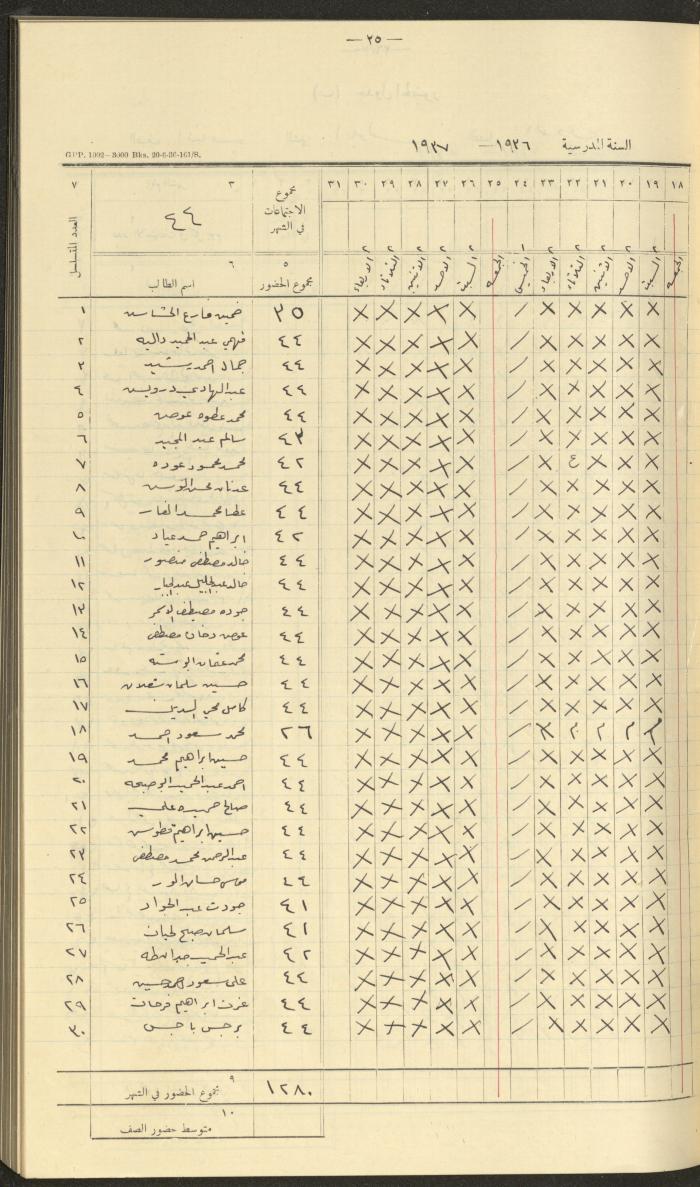 — ٢٥ —
السنة المدرسية ١٩٣٦ — ١٩٣٧
G.P.P. 1002—3000 Bks. 20-6-36-161/S.
١٨ ١٩ ٢٠ ٢١ ٢٢ ٢٣ ٢٤ ٢٥ ٢٦ ٢٧ ٢٨ ٢٩ ٣٠ ٣١ مجموع الاجتماعات في الشهر ٣ ٧
٤٤
٢ ٢ ٢ ٢ ٢ ١ ٢ ٢ ٢ ٢ ٢
الجمعة السبت الاحد الاثنين الثلاثاء الاربعاء الخميس الجمعة السبت الاحد الاثنين الثلاثاء الاربعاء
٥ مجموع الحضور ٦ اسم الطالب العدد المتسلسل
٣٥ ١
٤٤ فهمي عبد الحميد داليه ٢
٤٤ جمال احمد رشيد ٣
٤٤ عبد الهادي درويش ٤
٤٤ محمد عطوه عوض ٥
٤٣ سالم عبد المجيد ٦
٤٢ محمد محمود عوده ٧
٤٤ عدنان ٨
٤٤ عطا محمد الفار ٩
٤٢ ابراهيم حمد عياد ١٠
٤٤ خالد مصطفى منصور ١١
٤٤ خالد عبد الجليل عبد الجبار ١٢
٤٤ جوده مصطفى الاسمر ١٣
٤٤ عوض دخان مصطفى ١٤
٤٤ محمد عثمان ابو سته ١٥
٤٤ حسين سلمان شعلان ١٦
٤٤ كامل محي الدين ١٧
٢٦ محمد سعود احمد ١٨
٤٤ حسين ابراهيم محمد ١٩
٤٤ احمد عبد الحميد ٢٠
٤٤ صالح علي ٢١
٤٤ حسين ابراهيم قطوس ٢٢
٤٤ عبد الرحمن محمد مصطفى ٢٣
٤٤ موسى حسان ٢٤
٤١ جودت عبد الجواد ٢٥
٤١ سلمان صبح ٢٦
٤٢ عبد الحميد طه ٢٧
٤٤ علي سعود حسين ٢٨
٤٤ عزت ابراهيم فرحات ٢٩
٤٤ برجس ٣٠
١٢٨٠ ٩ مجموع الحضور في الشهر
١٠ متوسط حضور الصف